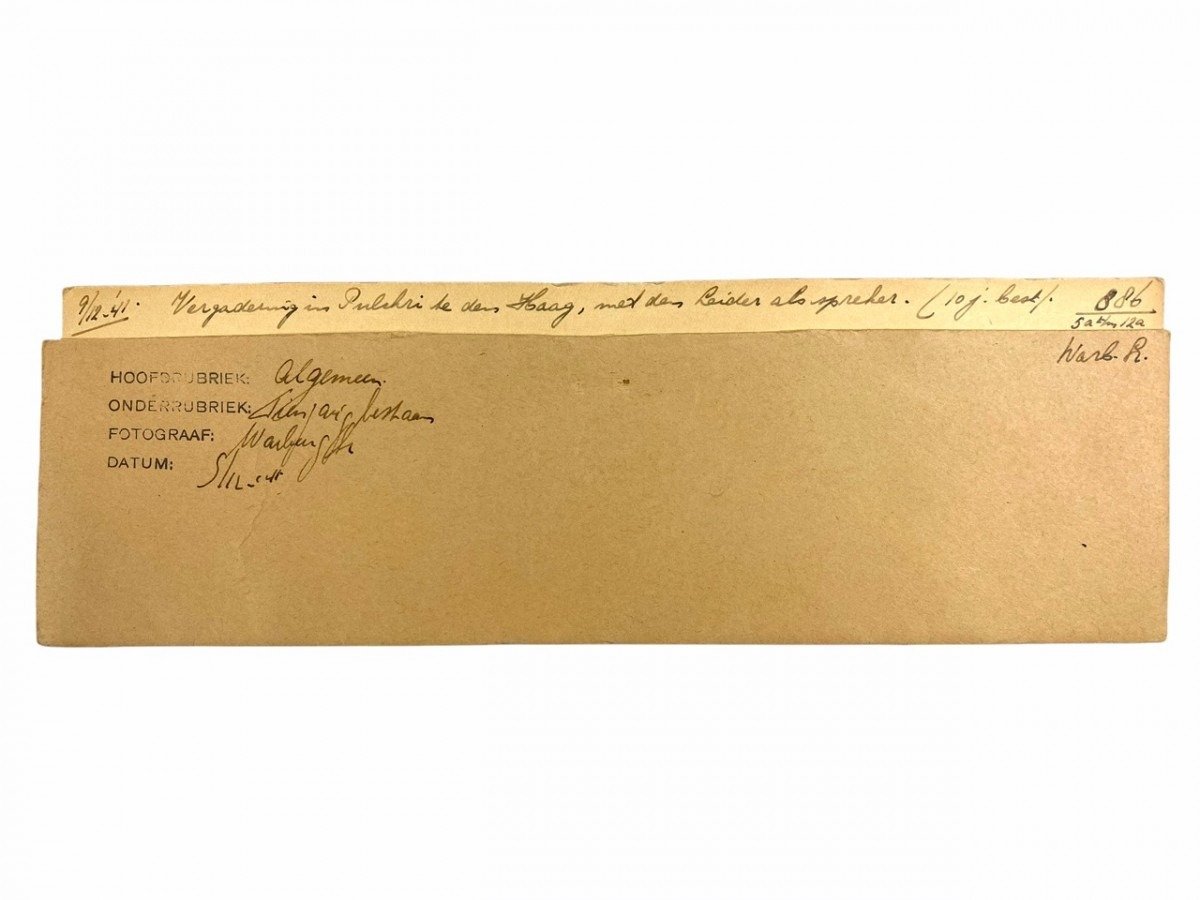 9/12-'41. Vergadering in Pulchri te den Haag, met den Leider als spreker. (10 j. best). 886
5a t/m 12a
Warb. R.
HOOFDRUBRIEK: Algemeen.
ONDERRUBRIEK: Tienjarig bestaan
FOTOGRAAF:
DATUM: 9/12-'41